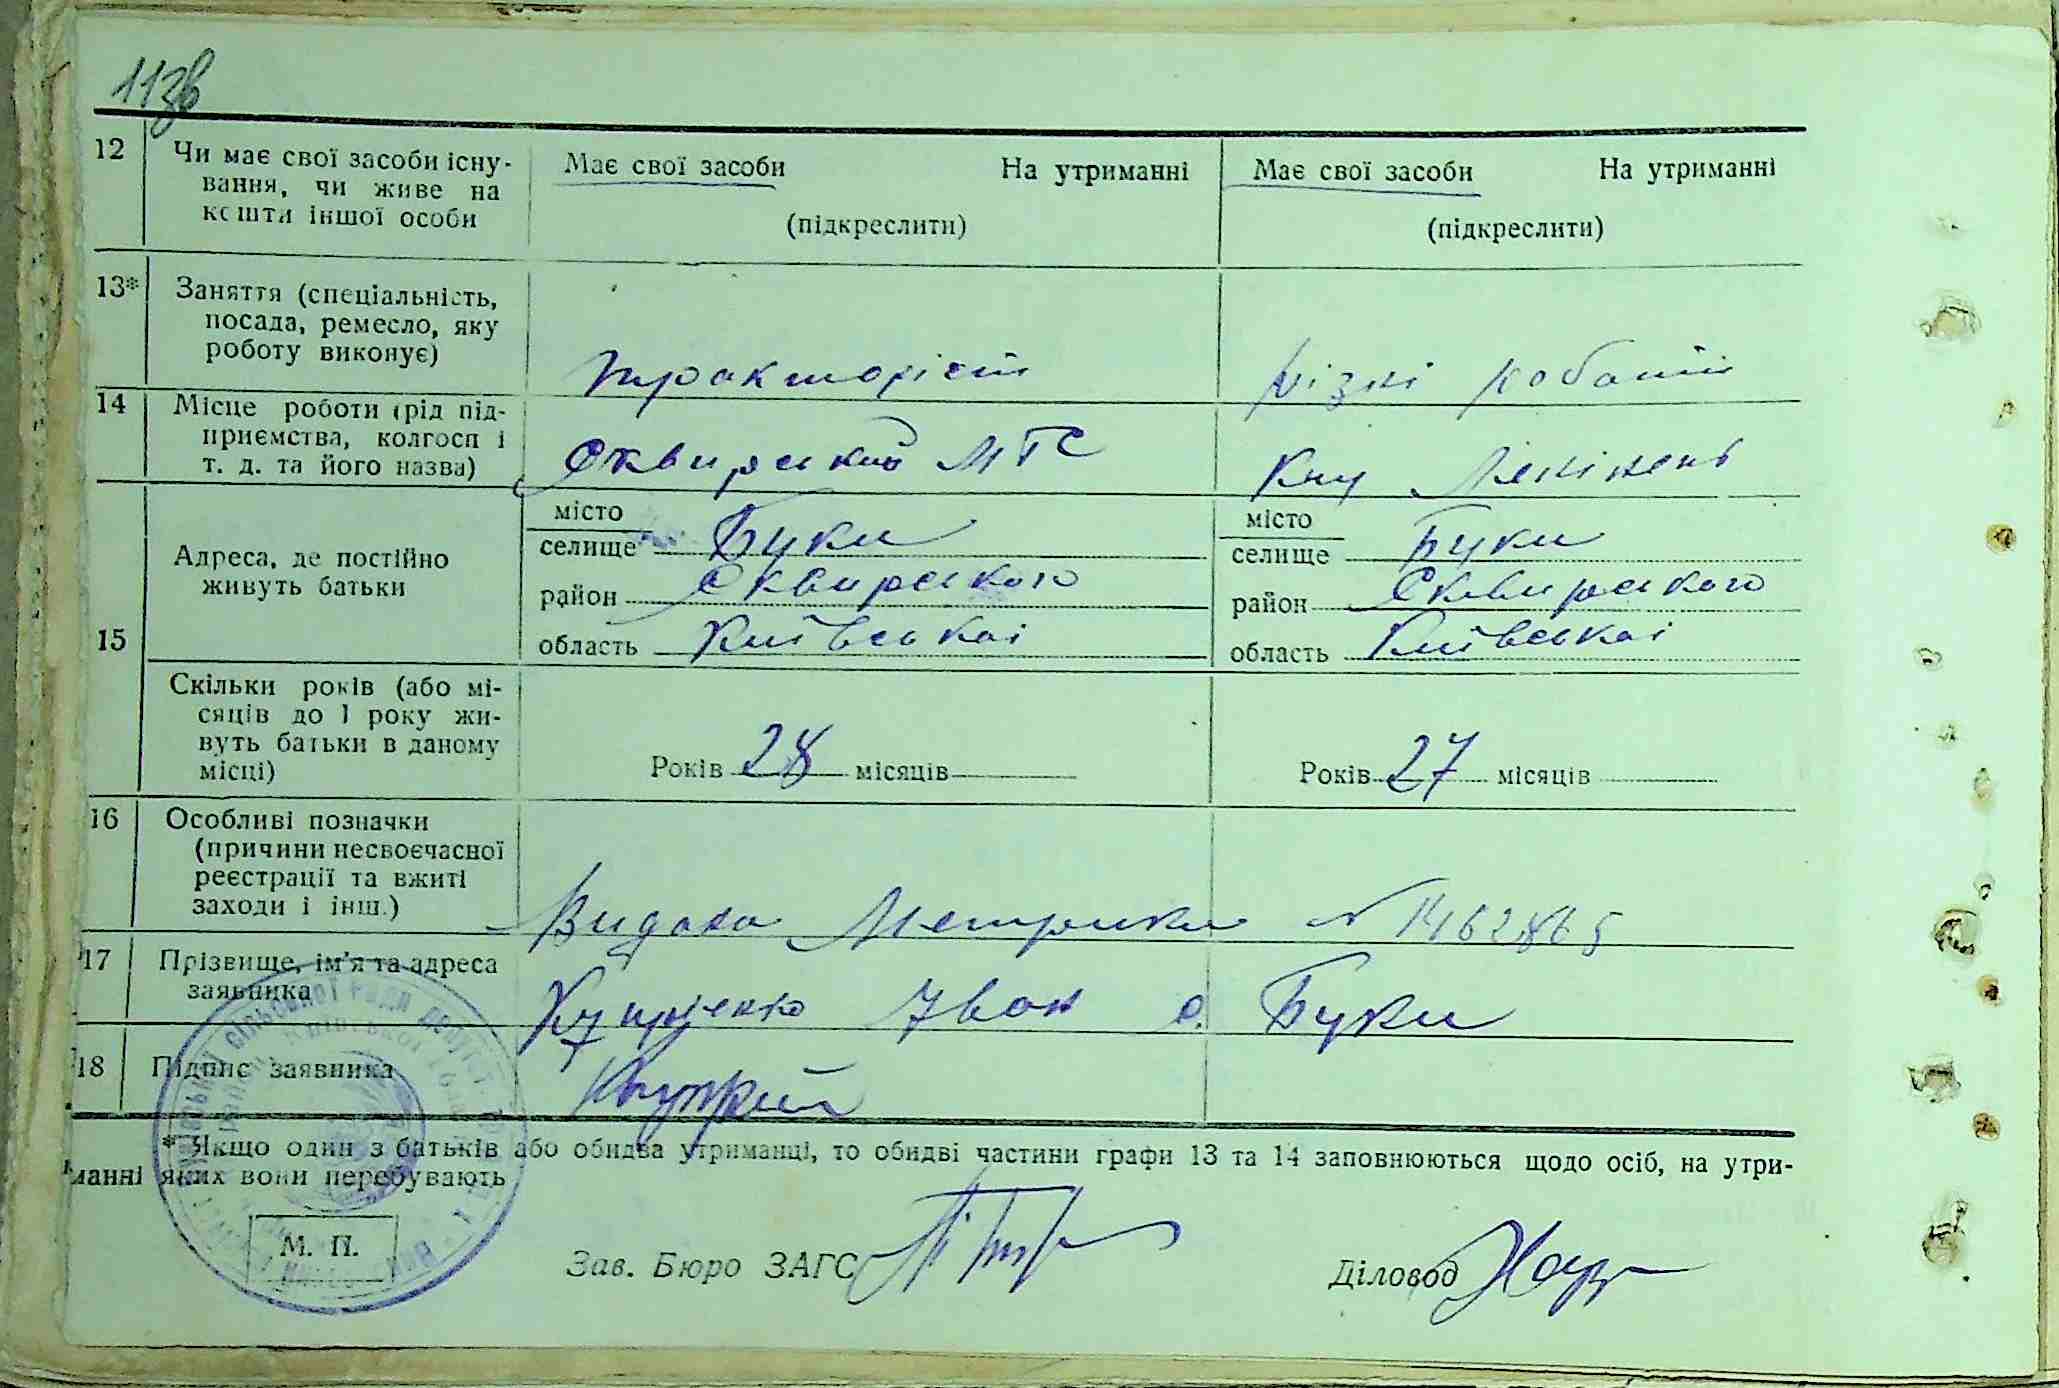 113в
12 Чи має свої засоби існу-
вання, чи живе на
кошти іншої особи
Має свої засоби На утриманні
(підкреслити)
Має свої засоби На утриманні
(підкреслити)
13* Заняття (спеціальність,
посада, ремесло, яку
роботу виконує)
тракторіст
різні работи
14 Місце роботи (рід під-
приємства, колгосп і
т. д. та його назва)
Сквирський МТС
15 Адреса, де постійно
живуть батьки
місто
селище Буки
район Сквирського
область Київської
місто
селище Буки
район Сквирського
область Київської
Скільки років (або мі-
сяців до 1 року жи-
вуть батьки в даному
місці)
Років 28 місяців
Років 27 місяців
16 Особливі позначки
(причини несвоєчасної
реєстрації та вжиті
заходи і інш.)
Видана Метрика № 1462865
17 Прізвище, ім'я та адреса
заявника
Іван с. Буки
18 Підпис заявника
* Якщо один з батьків або обидва утриманці, то обидві частини графи 13 та 14 заповнюються щодо осіб, на утри-
манні яких вони перебувають
М. П.
Зав. Бюро ЗАГС
Діловод